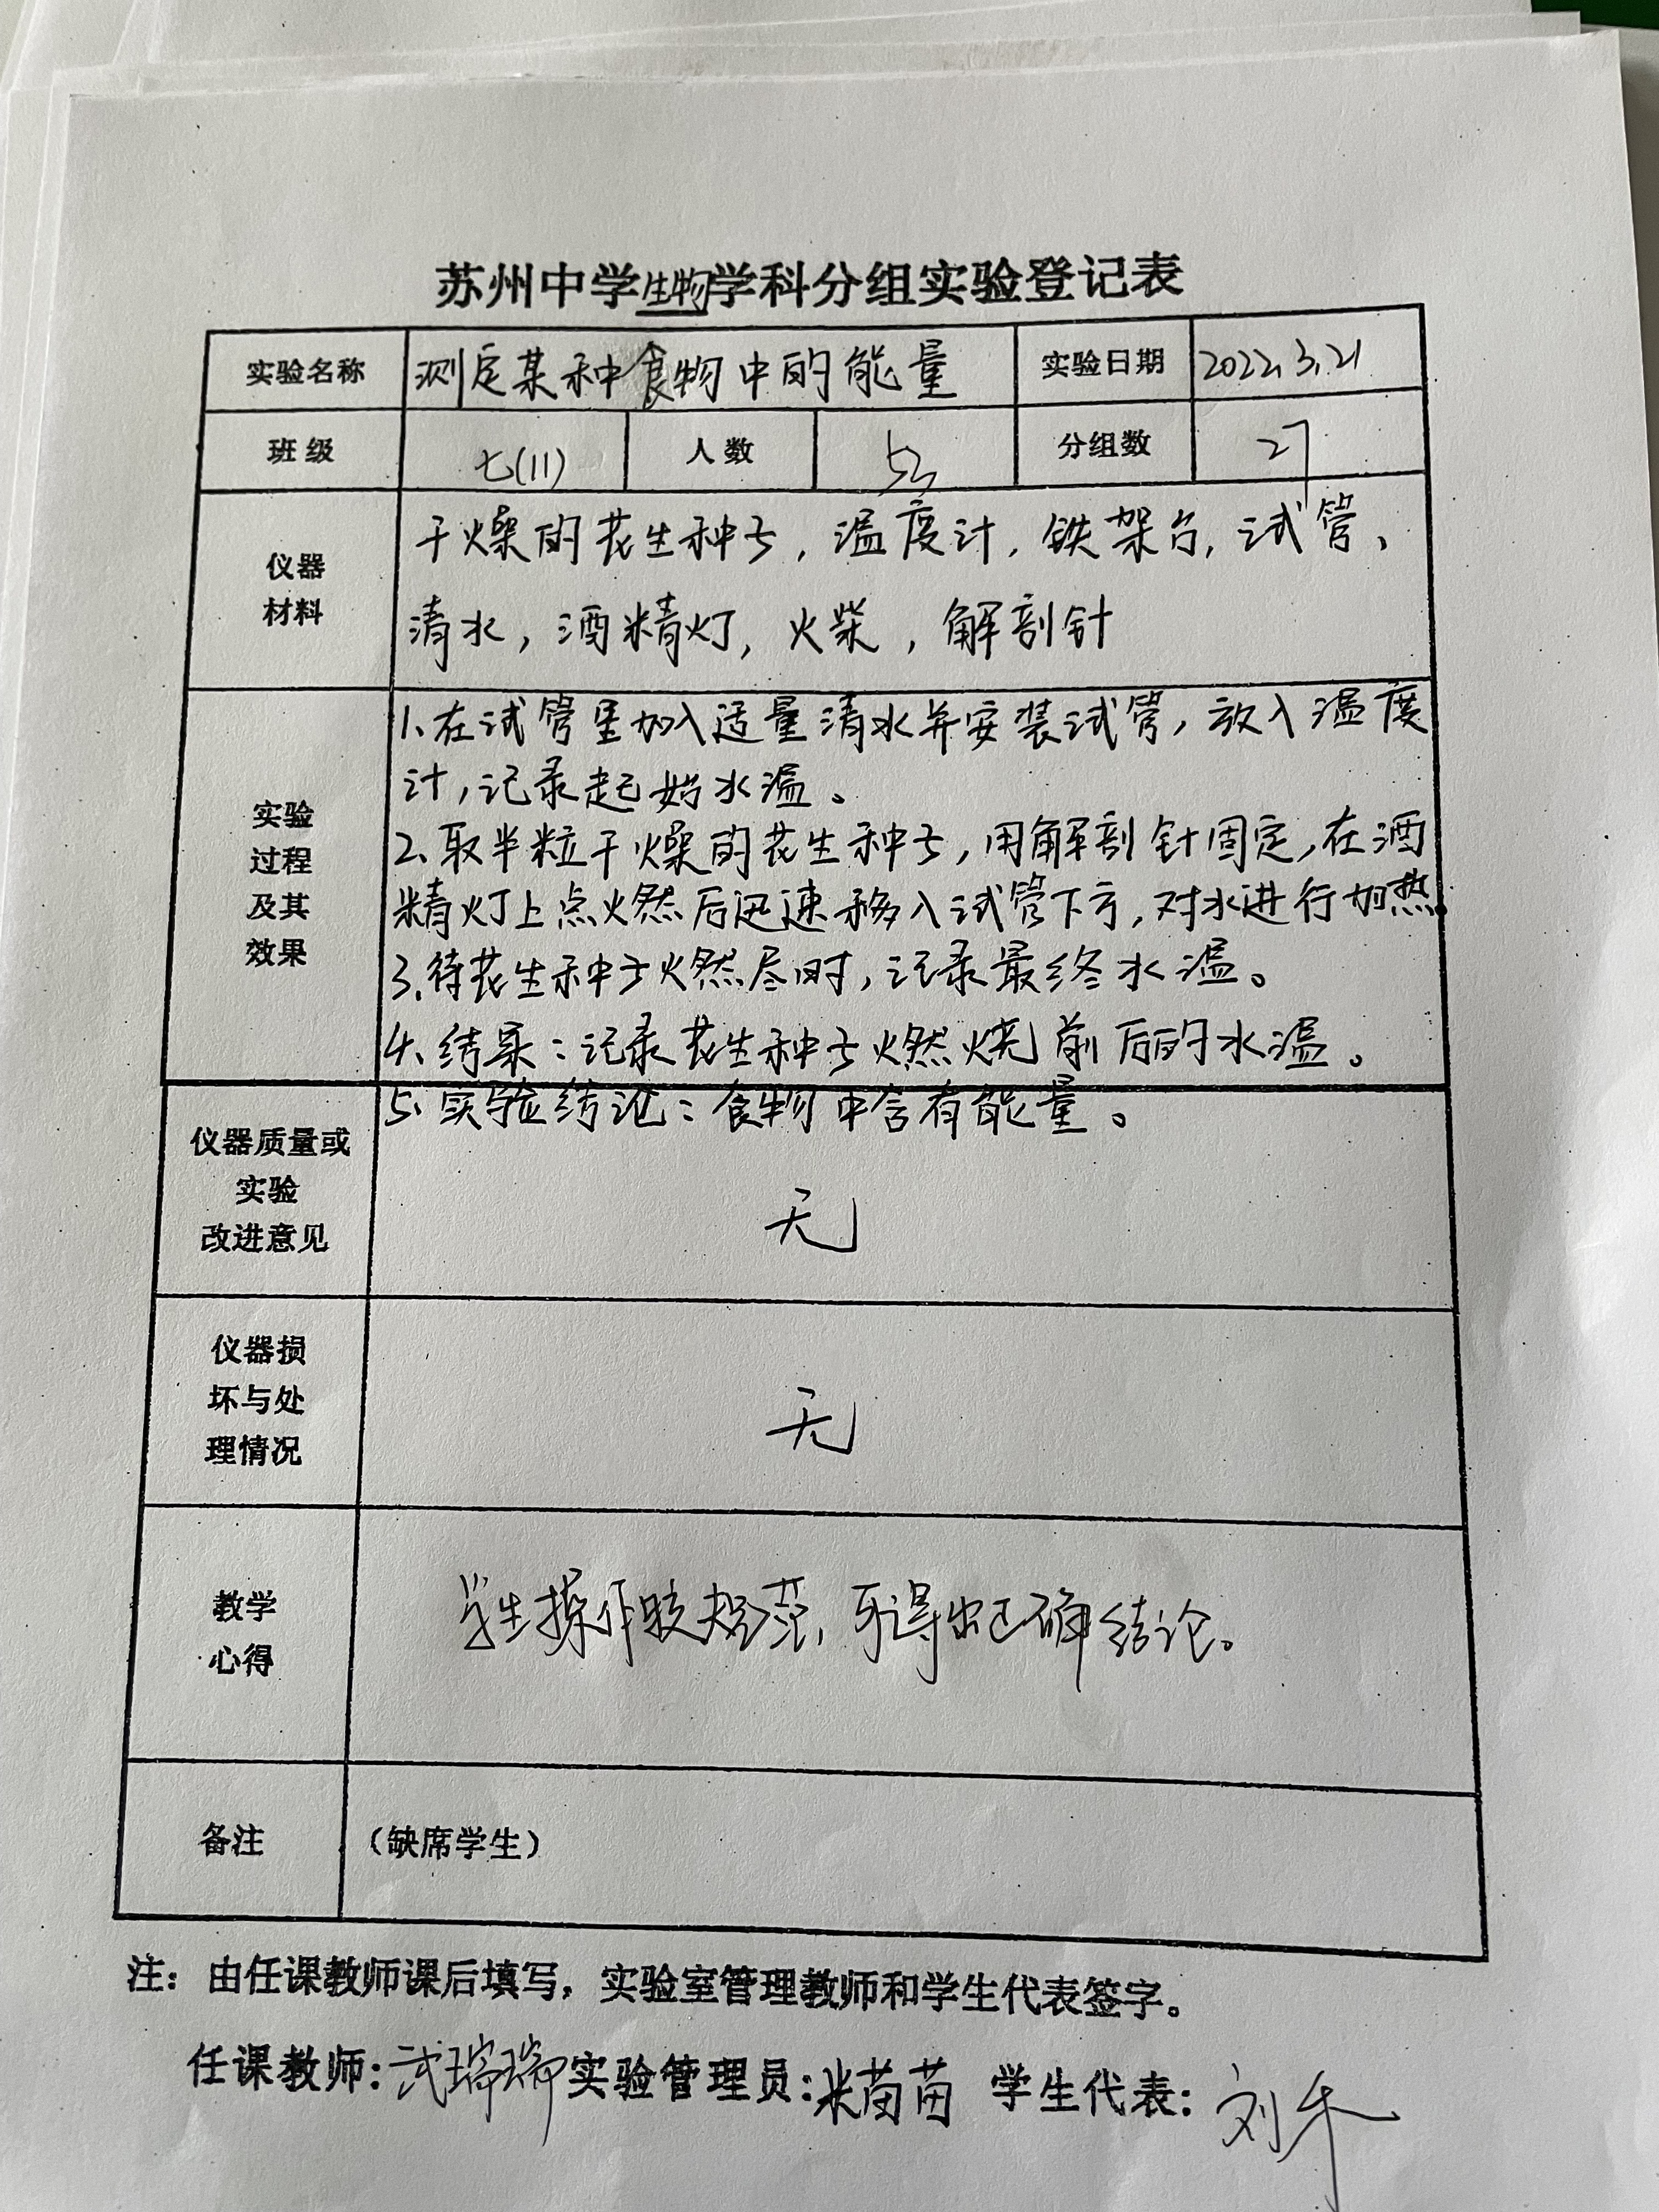 苏州中学生物学科分组实验登记表
实验名称 测定某种食物中的能量 实验日期 2022.3.21
班级 七(11) 人数 分组数 27
仪器
材料
干燥的花生种子,温度计,铁架台,试管、
清水,酒精灯,火柴,解剖针
实验
过程
及其
效果
1.在试管里加入适量清水并安装试管,放入温度
计,记录起始水温。
2、取半粒干燥的花生种子,用解剖针固定,在酒
精灯上点燃后迅速移入试管下方,对水进行加热
3.待花生种子燃尽时,记录最终水温。
4、结果:记录花生种子燃烧前后的水温。
5、实验结论:食物中含有能量。
仪器质量或
实验
改进意见
无
仪器损
坏与处
理情况
无
教学
心得
学生操作较规范,可得出正确结论。
备注 (缺席学生)
注:由任课教师课后填写,实验室管理教师和学生代表签字。
任课教师:武瑞瑞 实验管理员:米苗苗 学生代表:刘